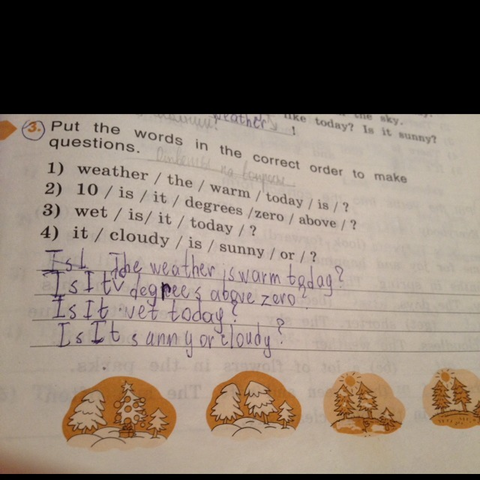 weather's the sky.
like today? Is it sunny?
3. Put the words in the correct order to make
questions.
1) weather / the / warm / today / is / ?
2) 10 / is / it / degrees /zero / above / ?
3) wet / is/ it / today / ?
4) it / cloudy / is / sunny / or / ?
Is 1. The weather is warm today?
Is It degrees above zero?
Is It wet today?
Is It sunny or cloudy?